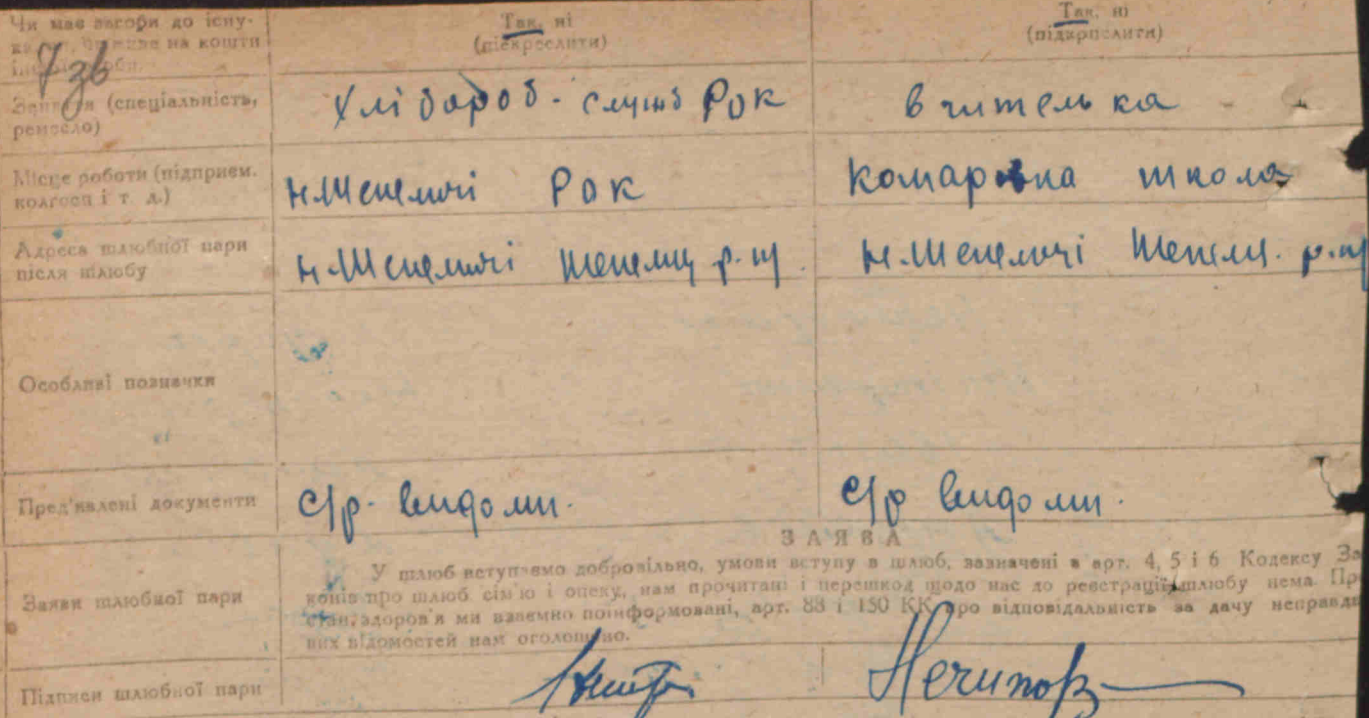 Чи має засоби до існу-
на кошти
7 зв
Так, ні Так, ні
(підкреслити) (підкреслити)
(спеціальність, Хлібороб - служб Рок вчителька
ремесло)
Місце роботи (підприєм. н.Шепеличі Рок школа
колгосп і т. д.)
Адреса шлюбної пари н.Шепеличі р. н.Шепеличі р.
після шлюбу
Особливі позначки
Пред'явлені документи с/р. видоми. с/р видоми.
ЗАЯВА
Заяви шлюбної пари У шлюб вступаємо добровільно, умови вступу в шлюб, зазначені в арт. 4, 5 і 6 Кодексу За
конів про шлюб сім'ю і опеку, нам прочитані і перешкод щодо нас до реєстрації шлюбу нема. Пр
стан здоров'я ми взаємно поінформовані, арт. 88 і 150 КК про відповідальність за дачу неправди
них відомостей нам оголошено.
Підписи шлюбної пари